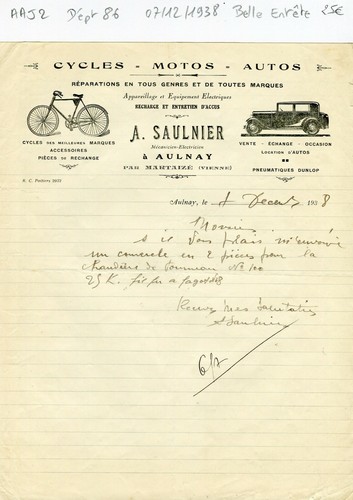 AAJ2 Dépt 86 07/12/1938 Belle Entête 25€
CYCLES - MOTOS - AUTOS
RÉPARATIONS EN TOUS GENRES ET DE TOUTES MARQUES
Appareillage et Equipement Electriques
RECHARGE ET ENTRETIEN D'ACCUS
A. SAULNIER
Mécanicien-Electricien
à AULNAY
PAR MARTAIZÉ (VIENNE)
CYCLES DES MEILLEURES MARQUES
ACCESSOIRES
PIÈCES DE RECHANGE
VENTE - ÉCHANGE - OCCASION
LOCATION D'AUTOS
PNEUMATIQUES DUNLOP
R. C. Poitiers
Aulnay, le 1938
Monsieur
s il vous plait m'envoyer
un couvercle en 2 pièces pour la
chaudière de No 100
25 K. fil
Recevez mes salutations
A Saulnier